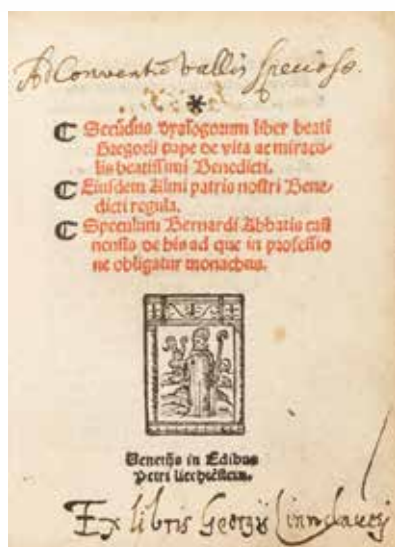 Ad Conventū Vallis speciosæ.
*
¶ Secūdus dyalogorum liber beati
Gregorii pape de vita ac miracu-
lis beatissimi Benedicti.
¶ Eiusdem Almi patris nostri Bene-
dicti regula.
¶ Speculum Bernardi Abbatis cassi
nensis de his ad que in professio
ne obligatur monachus.
Venetijs in Edibus
Petri liechtēstein.
Ex libris Georgij